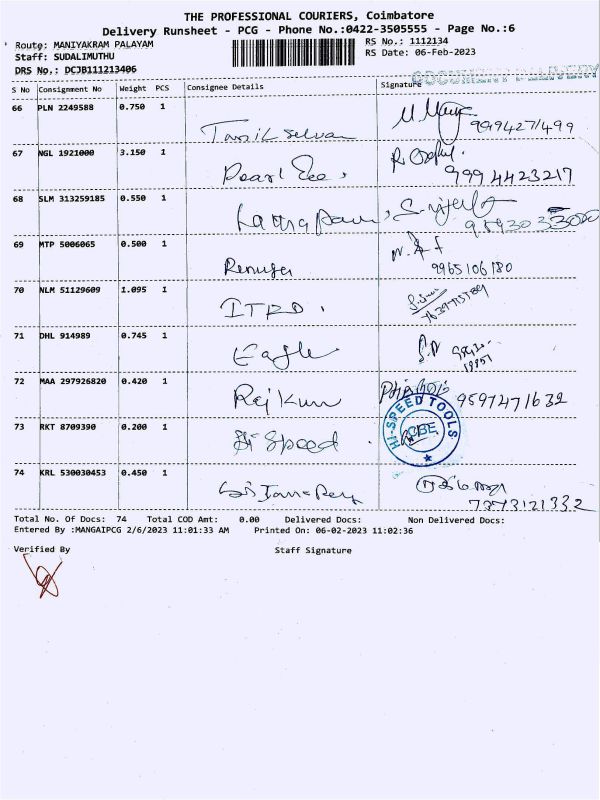 THE PROFESSIONAL COURIERS, Coimbatore
Delivery Runsheet - PCG - Phone No.:0422-3505555 - Page No.:6
Route: MANIYAKRAM PALAYAM RS No.: 1112134
Staff: SUDALIMUTHU RS Date: 06-Feb-2023
DRS No.: DCJB111213406
DOCUMENT DELIVERY
S No Consignment No Weight PCS Consignee Details Signature
66 PLN 2249588 0.750 1
Tamil Selvan 9994271499
67 NGL 1921000 3.150 1
Pearl 9994423217
68 SLM 313259185 0.550 1
69 MTP 5006065 0.500 1
Renuga 9965106180
70 NLM 51129609 1.095 1
ITRD.
71 DHL 914989 0.745 1
Eagle
72 MAA 297926820 0.420 1
Raj Kum 9597471632
73 RKT 8709390 0.200 1
Hi Speed HI-SPEED TOOLS CBE
74 KRL 530030453 0.450 1
7373121332
Total No. Of Docs: 74 Total COD Amt: 0.00 Delivered Docs: Non Delivered Docs:
Entered By :MANGAIPCG 2/6/2023 11:01:33 AM Printed On: 06-02-2023 11:02:36
Verified By Staff Signature